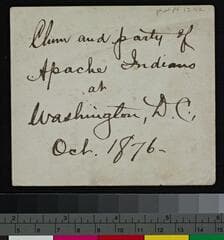 Clum and party of
Apache Indians
at
Washington, D.C.,
Oct. 1876-